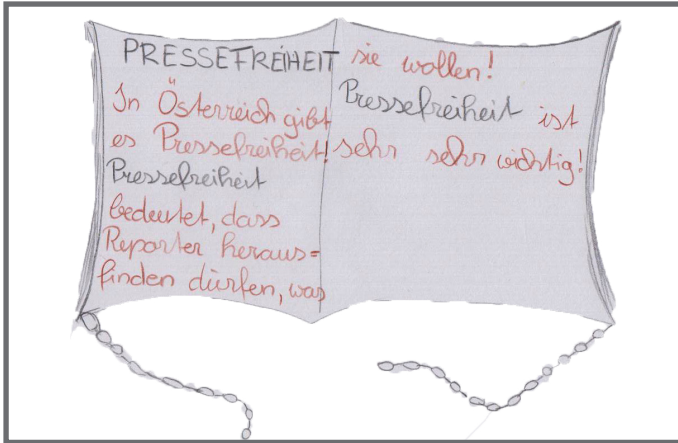 PRESSEFREIHEIT
In Österreich gibt
es Pressefreiheit!
Pressefreiheit
bedeutet, dass
Reporter heraus=
finden dürfen, was
sie wollen!
Pressefreiheit ist
sehr sehr wichtig!